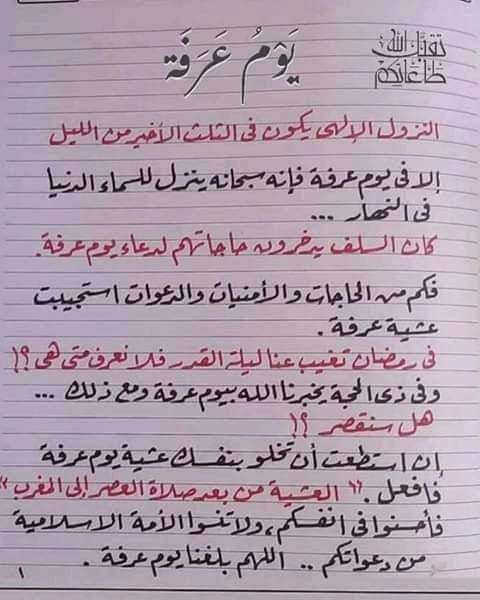 تقبل الله
طاعاتكم
يَوْمُ عَرَفَة
النزول الإلهى يكون فى الثلث الأخير من الليل
إلا فى يوم عرفة فإنه سبحانه ينزل للسماء الدنيا
فى النهار ...
كان السلف يدخرون حاجاتهم لدعاء يوم عرفة.
فكم من الحاجات والأمنيات والدعوات استجيبت
عشية عرفة.
فى رمضان تغيب عنا ليلة القدر فلا نعرف متى هى ؟!
وفى ذى الحجة يخبرنا الله بيوم عرفة ومع ذلك ...
هل سنقصر ؟!
إن استطعت أن تخلو بنفسك عشية يوم عرفة
فافعل. "العشية من بعد صلاة العصر إلى المغرب"
فأحسنوا فى انفسكم، ولا تنسوا الأمة الاسلامية
من دعواتكم .. اللهم بلغنا يوم عرفة.
١